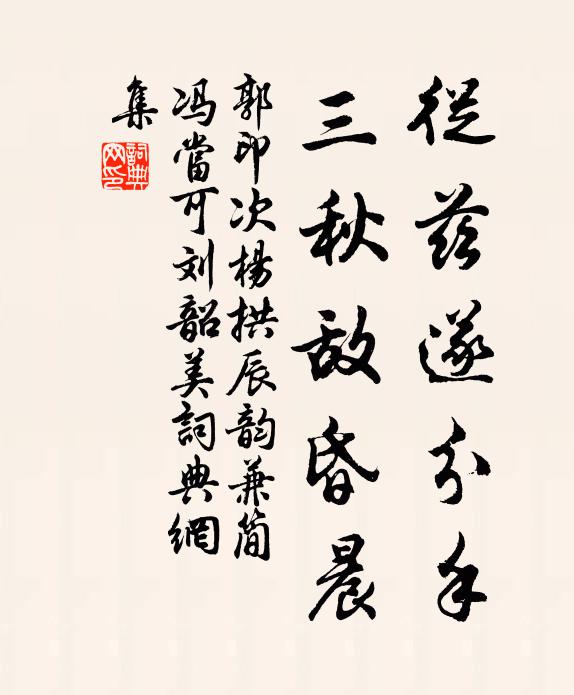 從茲遂分手
三秋敌昏晨
郭印次楊拱辰韵兼简
冯當可刘韶美詞典網
集
詞典網印